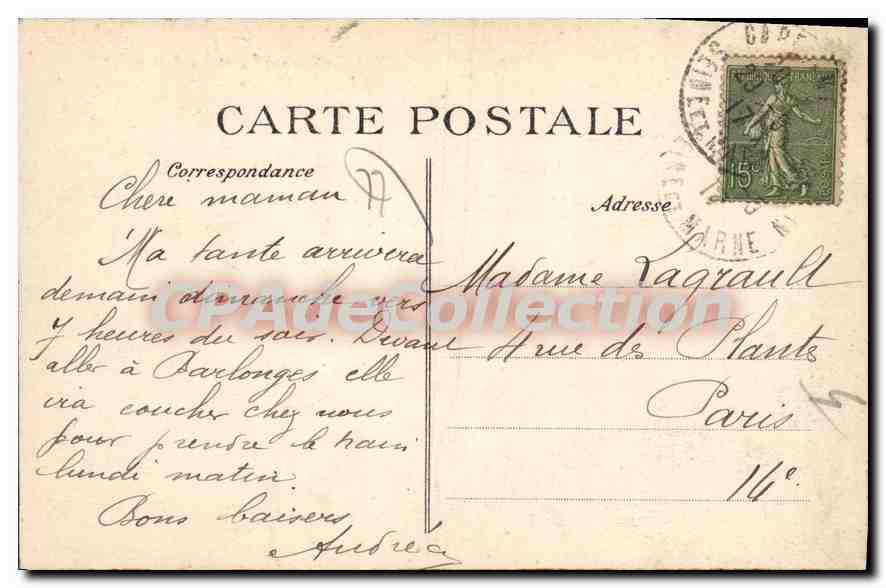 CARTE POSTALE
Correspondance
Chere maman
Ma tante arrivera
demain dimanche vers
7 heures du soir. Devant
aller à Barlonges elle
ira coucher chez nous
pour prendre le train
lundi matin
Bons baisers
Andréa
Adresse
Madame Lagrault
4 rue des Plantes
Paris
14e.
SEINE ET MARNE
15c
CPAdeCollection